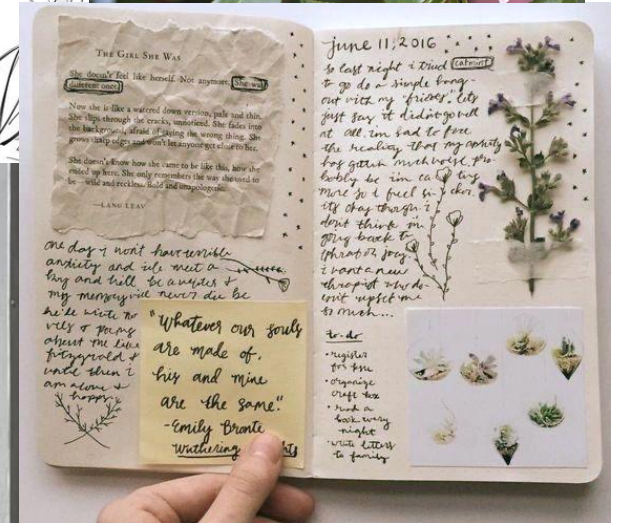 THE GIRL SHE WAS
She doesn't feel like herself. Not anymore. She was
different once.
Now she is like a watered down version, pale and thin.
She slips through the cracks, unnoticed. She fades into
the background, afraid of saying the wrong thing. She
grows sharp edges and won't let anyone get close to her.
She doesn't know how she came to be like this, how she
ended up here. She only remembers the way she used to
be—wild and reckless/Bold and unapologetic.
—LANG LEAV
one day i won't have terrible
anxiety and ill meet a
boy and he'll be a writer &
my memory will never die bc
he'll write no
vels & poems
about me like
fitzgerald &
until then i
am alone &
happy
"Whatever our souls
are made of,
his and mine
are the same."
-Emily Bronte
Wuthering
june 11, 2016
so last night i tried catmint
to go do a simple hang-
out with my "friends" lets
just say it didn't go well
at all. im sad to face
the reality that my anxiety
has gotten much worse pro-
bably bc im
more so i feel
its okay though i
don't think im
going back to
i want a new
who do
esn't upset me
so much...
to-do
• register
for
• organize
craft box
• read a
book every
night
• write letters
to family